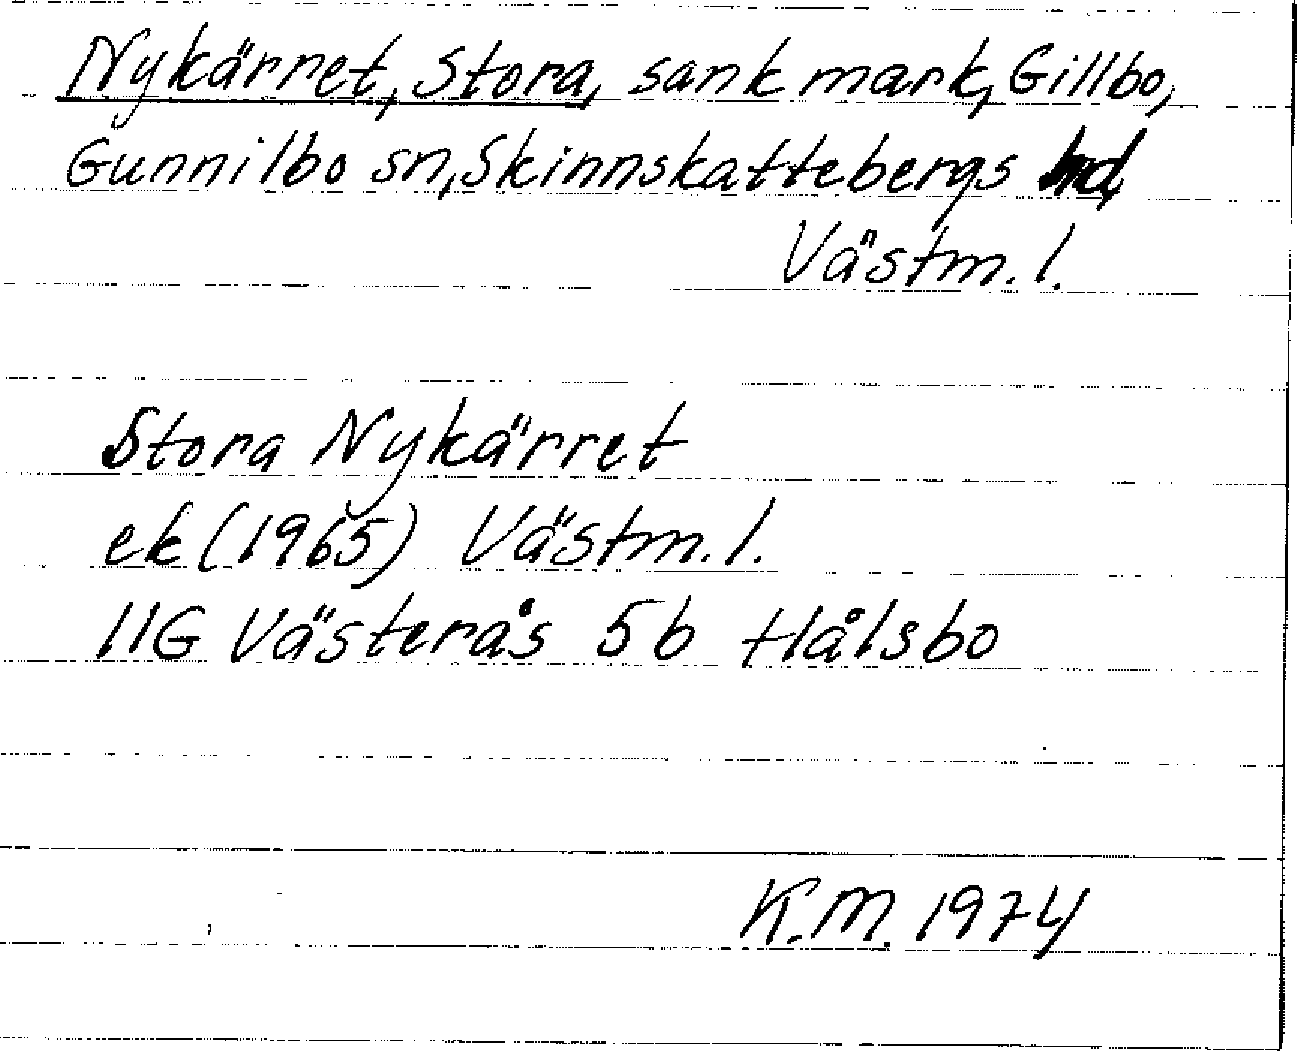 Nykärret, Stora, sank mark, Gillbo,
Gunnilbo sn, Skinnskattebergs hd,
Västm. l.
Stora Nykärret
ek (1965) Västm. l.
11G Västerås 5b Hålsbo
K.M. 1974